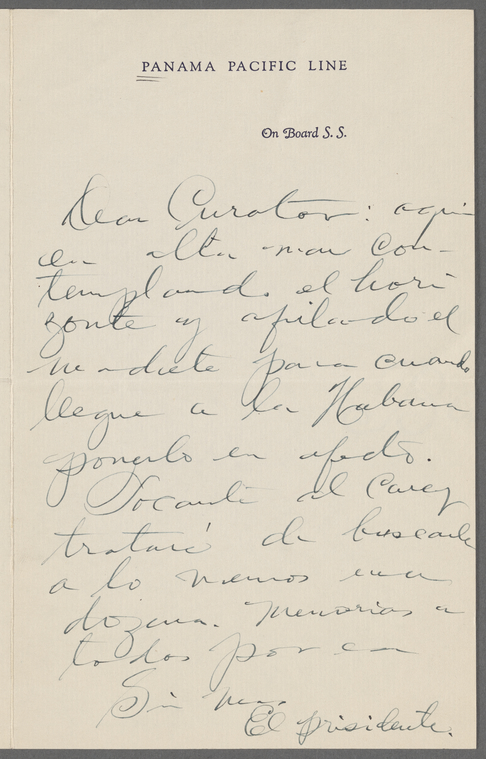 PANAMA PACIFIC LINE
On Board S. S.
Dear Curator: aqui
en alta mar con-
templando el hori
zonte y afilando el
para cuando
llegue a la Habana
ponerlo en
Tocante al Carey
trataré de buscarle
a lo menos una
dozena. Memorias a
todos por
Sin mas
El presidente.